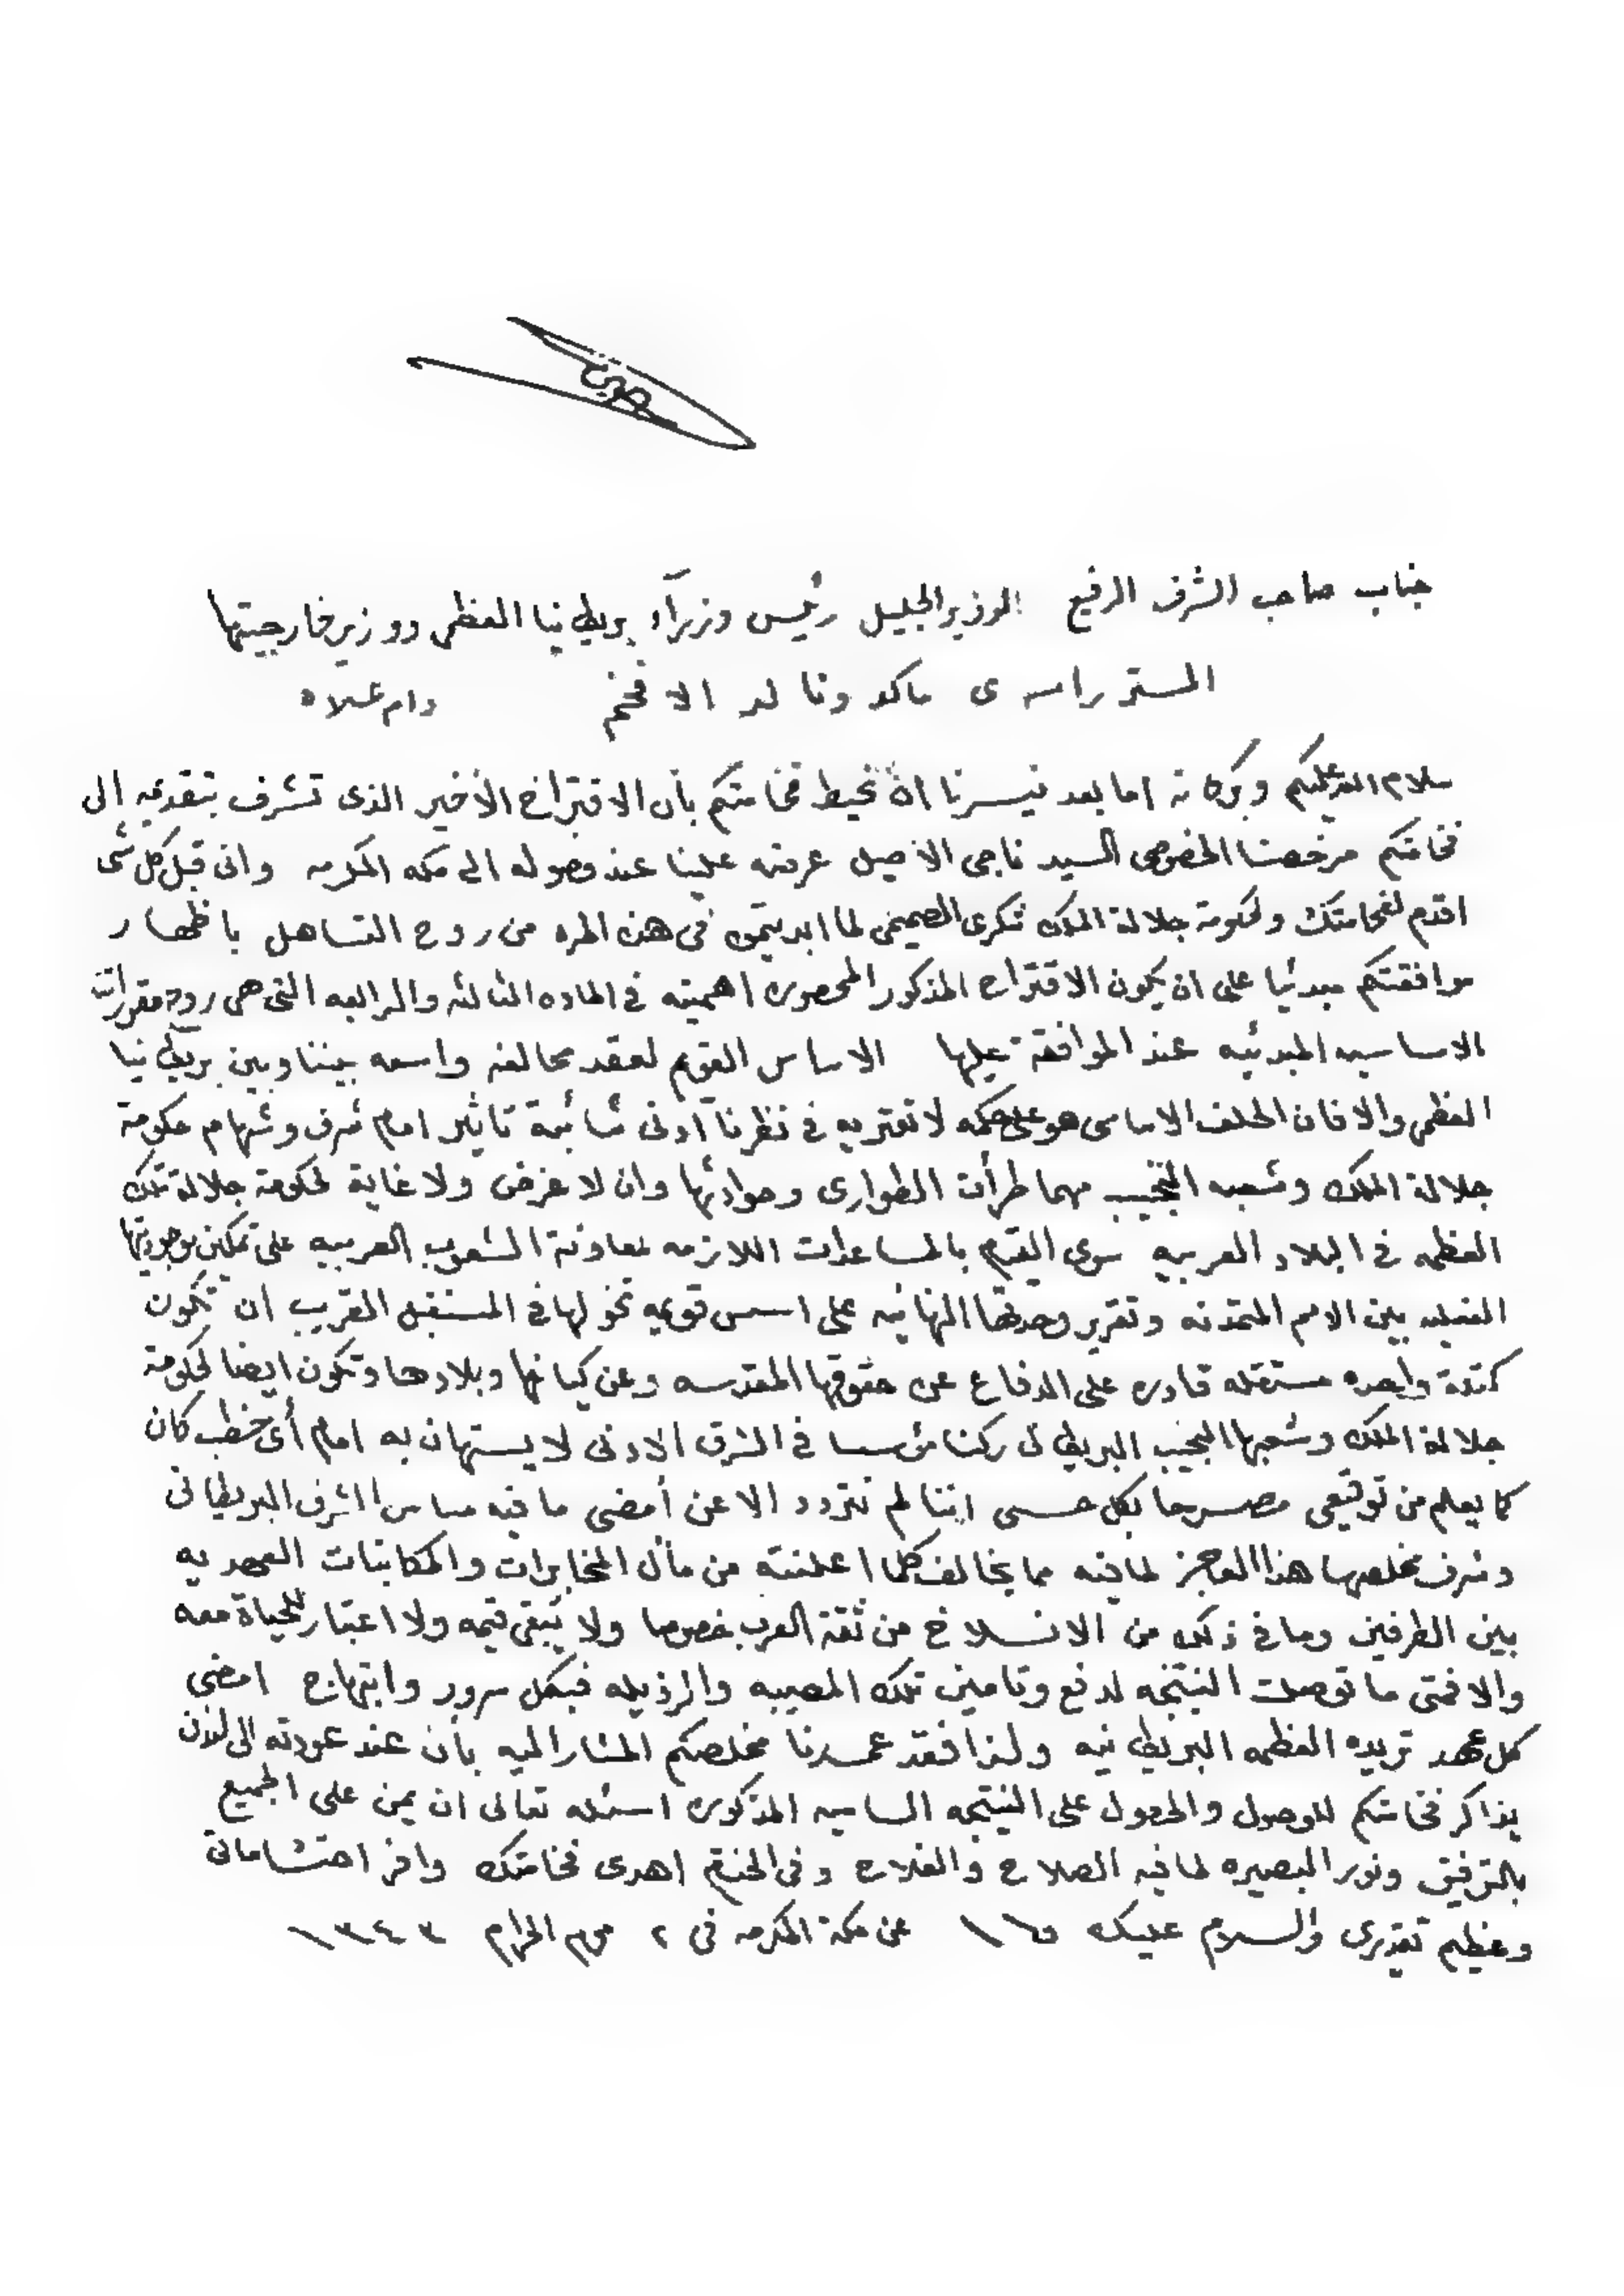 حسين
جناب صاحب الشرف الرفيع الوزير الجليل رئيس وزرآء بريطانيا العظمى ووزير خارجيتها
المستر رامسى ماكدونالد الافخم دام علاه
سلام الله عليكم وبركاته اما بعد فيسرنا ان نحيط فخامتكم بأن الاقتراح الأخير الذى تشرف بتقديمه إلى
فخامتكم مرخصنا الخصوصى السيد ناجى الاصيل عرضه علينا عند وصوله الى مكه المكرمه وانى قبل كل شئ
اقدم لفخامتك ولحكومة جلالة الملك شكرى الصميمى لما ابديتموه فى هذه المره من روح التساهل باظهار
موافقتكم مبدئيا على ان يكون الاقتراح المذكور المحصوره اهميته فى الماده الثالثه والرابعه التى هى روح مقررات
الاساسيه المبدئيه عند الموافقة عليها الاساس القويم لعقد محالفه واسعه بيننا وبين بريطانيا
العظمى والا فان الحلف الاساسى هو على حكمه لا تعتريه فى نظرنا أدنى شائبة تاثير امام شرف وشهام حكومة
جلالة الملك وشعبه النجيب مهما طرأت الطوارى وحوادثها وان لا غرض ولا غاية لحكومة جلالة تلك
العظمه فى البلاد العربيه سوى القيام بالمساعدات اللازمه لمعاونة الشعوب العربيه على تمكين موجوديتها
بين الامم المتمدنه وتقرير وحدتها النهائيه على اسس قويمه تخولها فى المستقبل القريب ان تكون
كتلة واحده مستقله قادره على الدفاع عن حقوقها المقدسه وعن كيانها وبلادها وتكون ايضا لحكومة
جلالة الملك وشعبها النجيب البريطانى ركنا مؤسسا فى الشرق الادنى لا يستهان به امام أى خطب كان
كما يعلم من توقيعى مصرحا بكل حسى اننا لم نتردد الا عن أمضى ما فيه مساس الشرف البريطانى
وشرف مخلصها هذا العاجز لما فيه مما يخالف كلما اعلنته من مأل المخابرات والمكاتبات العهديه
بين الطرفين وما فى ذلك من الانسلاخ من ثقة العرب خصوصا ولا يبقى قيمه ولا اعتبار للحياة معه
والا فمتى ما توصلت النتيجه لدفع وتامين تلك المصيبه والرذيله فبكل سرور وابتهاج امضى
كل عهد تريده العظمه البريطانيه ولذا فقد عمدنا مخلصكم المشار اليه بأن عند عودته الى لندن
يذاكر فخامتكم للوصول والحصول على النتيجه الساميه المذكوره اسئله تعالى ان يمن على الجميع
بالتوفيق ونور البصيره لما فيه الصلاح والفلاح وفى الختام اهدى فخامتك وافر احتشاماتى
وعظيم تقديرى والسلام عليك عن مكة المكرمه فى ٢ محرم الحرام ١٣٤٣